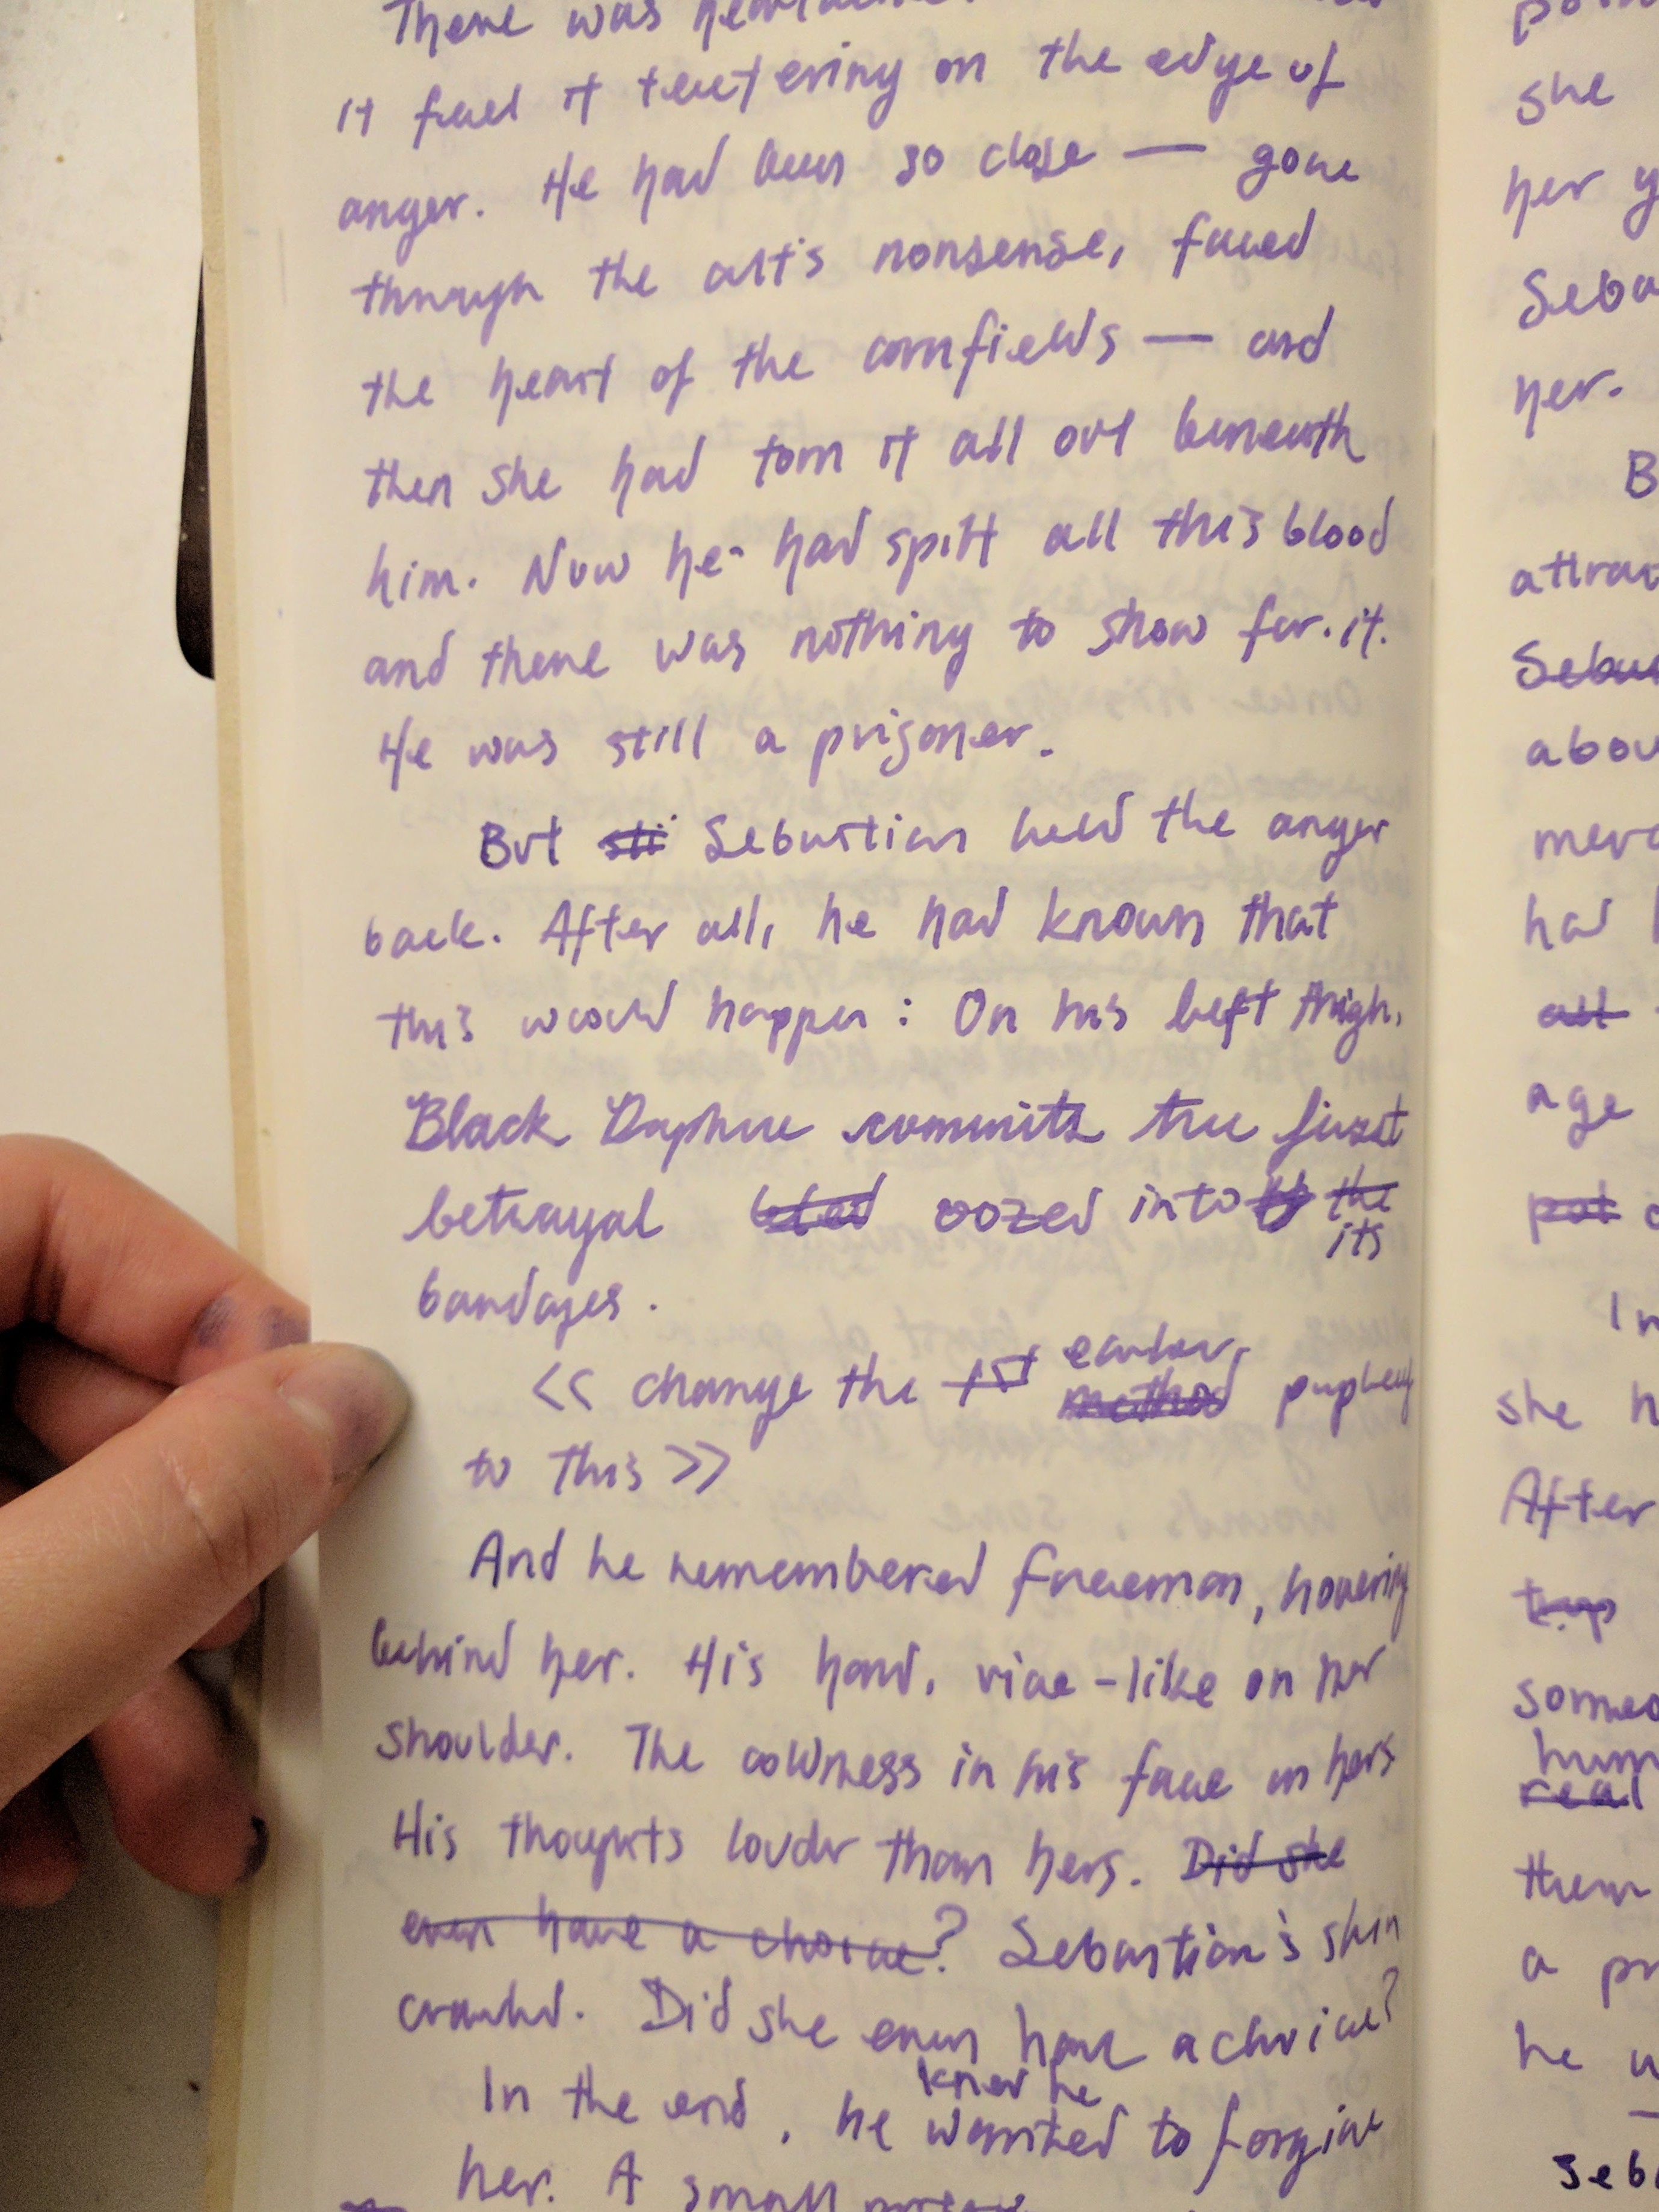 There was
it fuel it teetering on the edge of
anger. He had been so close — gone
through the cult's nonsense, faced
the heart of the cornfields — and
then she had torn it all out beneath
him. Now he had spilt all this blood
and there was nothing to show for it.
He was still a prisoner.
But sti Sebastian held the anger
back. After all, he had known that
this would happen: On his left thigh,
Black Daphne commits the first
betrayal bled oozed into the
its
bandages.
earlier
<< change the 1st method prophecy
to this >>
And he remembered Foreman, hovering
behind her. His hand, vice-like on her
shoulder. The coldness in his face on hers
His thoughts louder than hers. Did she
even have a choice? Sebastian's skin
crawled. Did she even have a choice?
knew he
In the end, he wanted to forgive
her. A small
she
her
Seba
her.
B
abou
had
all
age
In
she h
After
someo
hum
real
them
a pr
he w
Seb